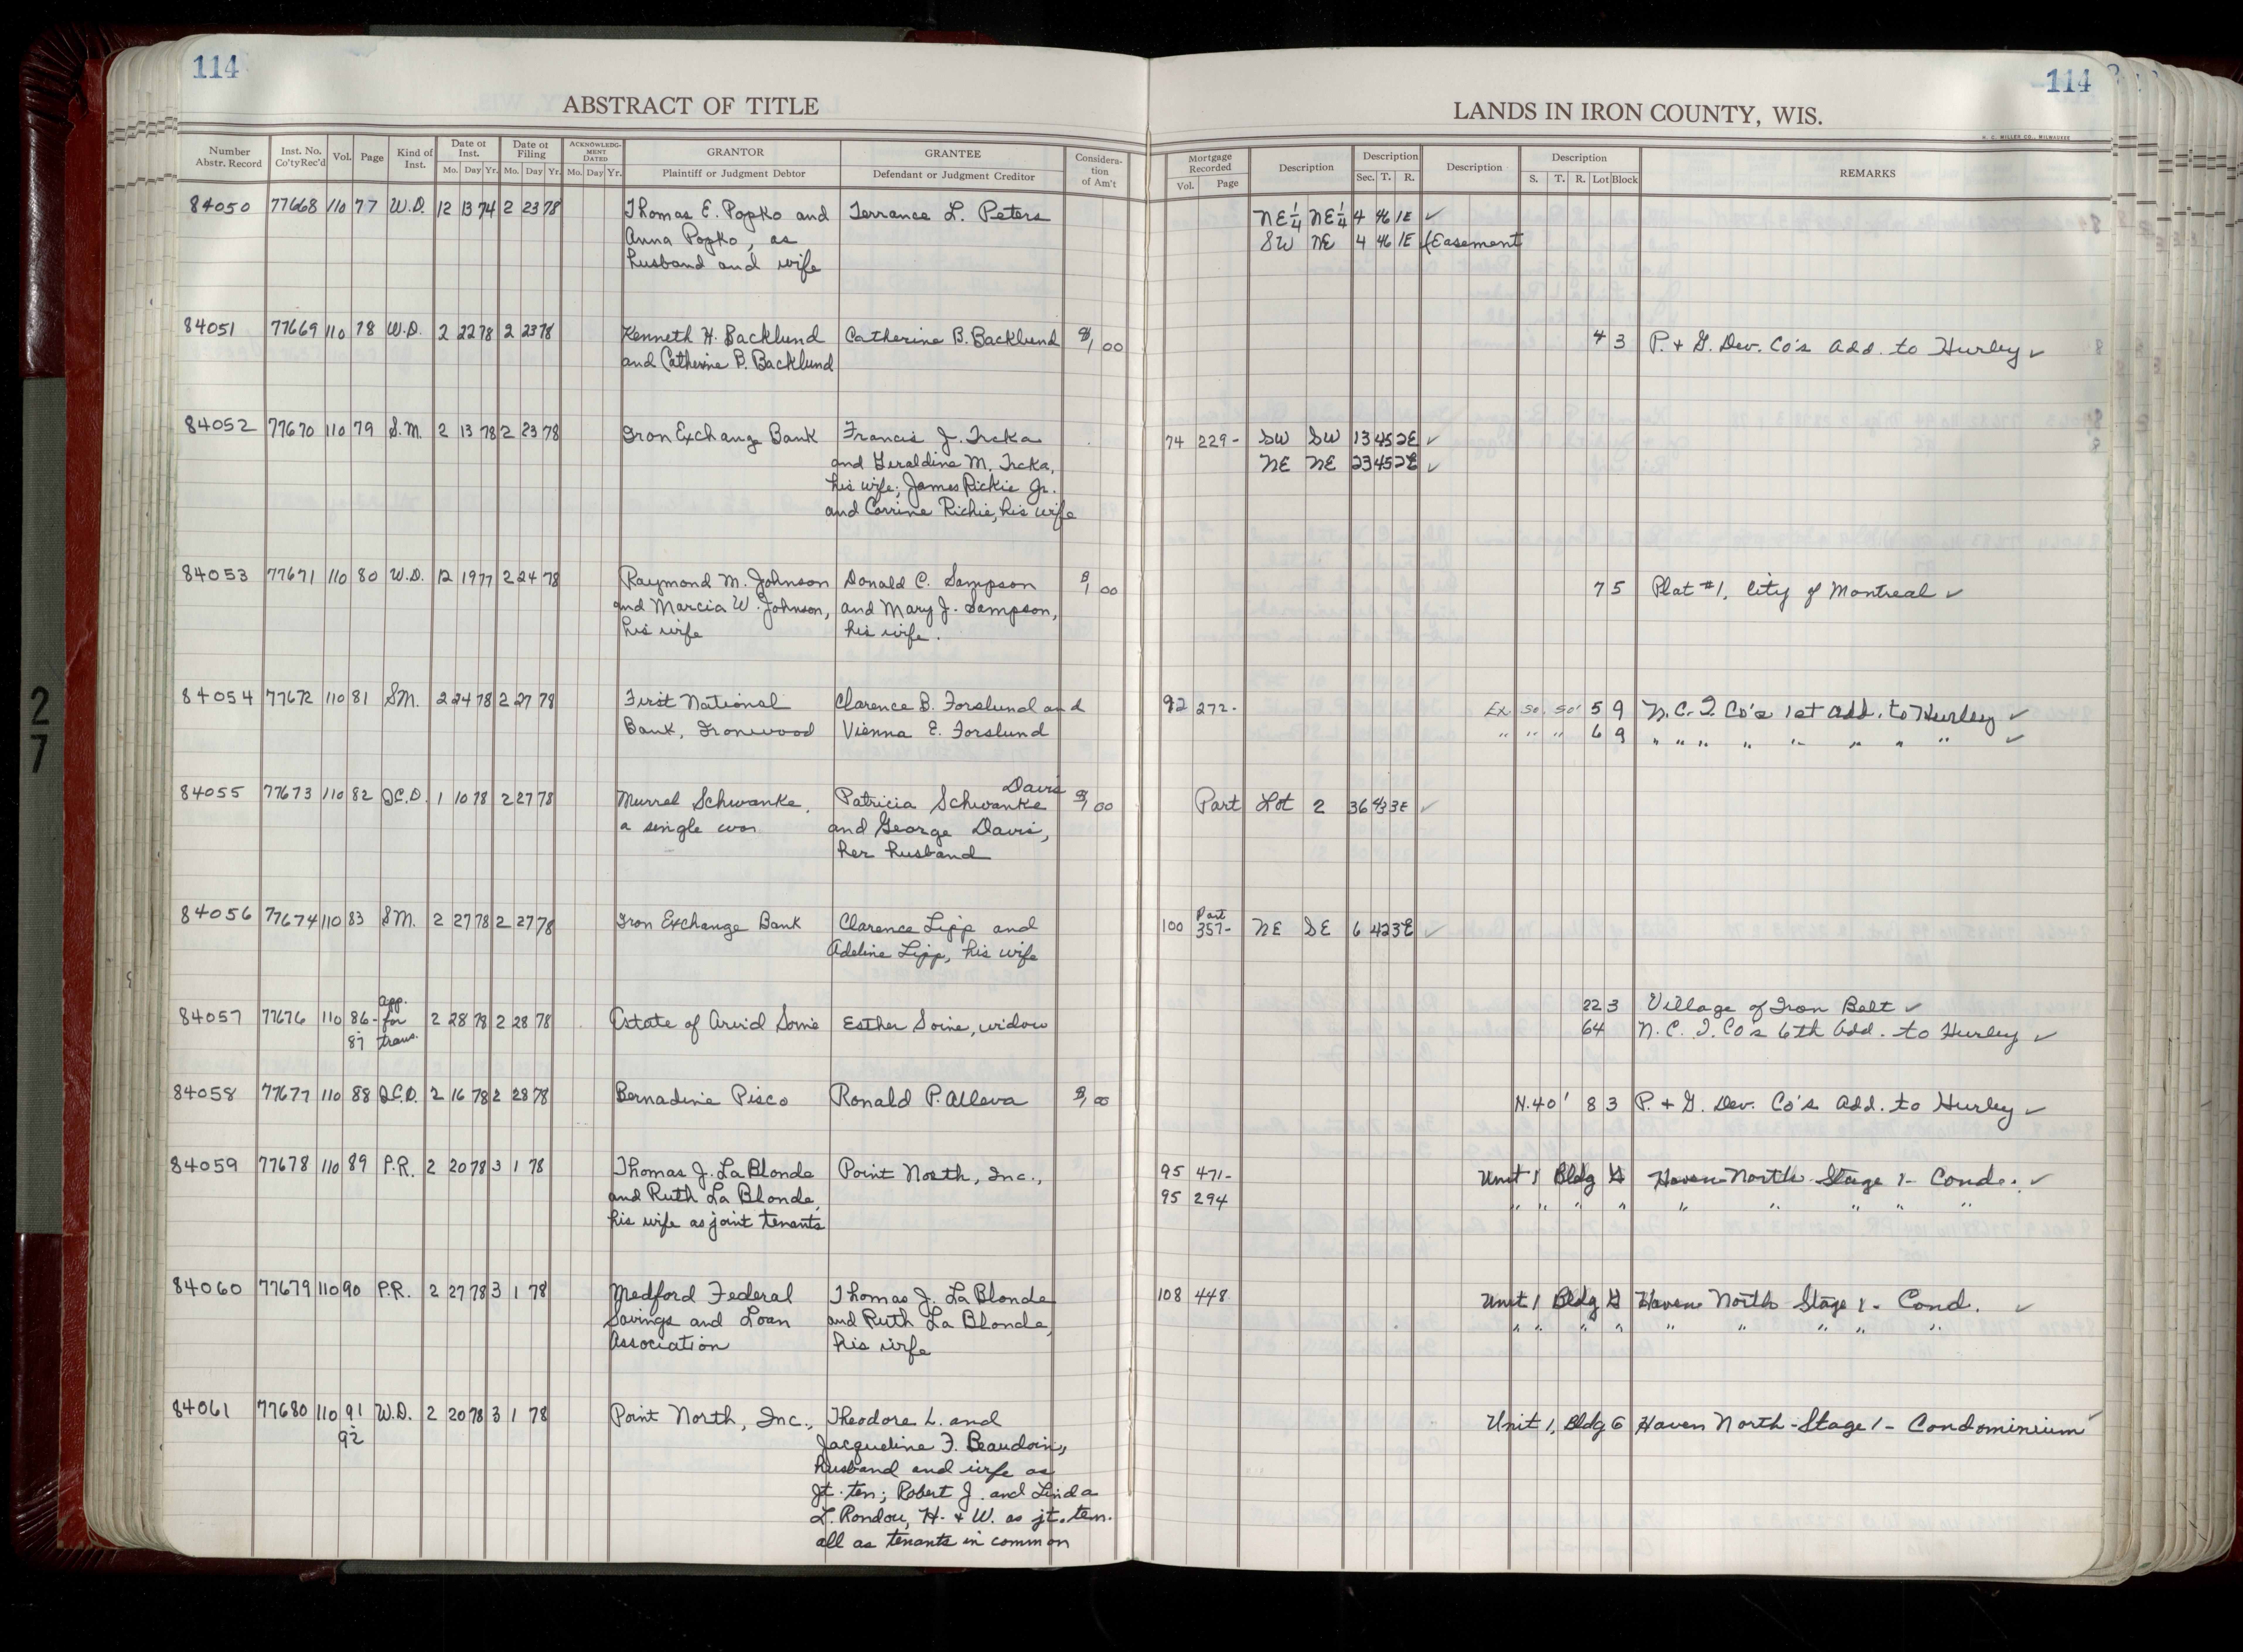 114
114
ABSTRACT OF TITLE
LANDS IN IRON COUNTY, WIS.
H. C. MILLER CO., MILWAUKEE
Number Abstr. Record | Inst. No. Co'ty Rec'd | Vol. | Page | Kind of Inst. | Date of Inst. Mo. Day Yr. | Date of Filing Mo. Day Yr. | ACKNOWLEDGMENT DATED Mo. Day Yr. | GRANTOR Plaintiff or Judgment Debtor | GRANTEE Defendant or Judgment Creditor | Consideration of Am't | Mortgage Recorded Vol. Page | Description | Description Sec. T. R. | Description | Description S. T. R. Lot Block | REMARKS
84050 77668 110 77 W.D. 12 13 74 2 23 78 Thomas E. Popko and Terrance L. Peters NE¼ NE¼ 4 46 1E ✓
Anna Popko, as SW NE 4 46 1E (Easement
husband and wife
84051 77669 110 78 W.D. 2 22 78 2 23 78 Kenneth H. Backlund Catherine B. Backlund $1 00 4 3 P. & G. Dev. Co's Add. to Hurley ✓
and Catherine B. Backlund
84052 77670 110 79 S.M. 2 13 78 2 23 78 Iron Exchange Bank Francis J. Trcka 74 229- SW SW 13 45 2E ✓
and Geraldine M. Trcka, NE NE 23 45 2E ✓
his wife; James Rickie Jr.
and Corrine Richie, his wife
84053 77671 110 80 W.D. 12 19 77 2 24 78 Raymond M. Johnson Donald C. Sampson $1 00 7 5 Plat #1, City of Montreal ✓
and Marcia W. Johnson, and Mary J. Sampson,
his wife his wife.
84054 77672 110 81 SM. 2 24 78 2 27 78 First National Clarence B. Forslund and 92 272- Ex. So. 50' 5 9 N.C.I. Co's 1st Add. to Hurley ✓
Bank, Ironwood Vienna E. Forslund " " " 6 9 " " " " " " " " ✓
84055 77673 110 82 Q.C.D. 1 10 78 2 27 78 Murrel Schwanke, Patricia Schwanke Davis $1 00 Part Lot 2 36 43 3E ✓
a single wom. and George Davis,
her husband
84056 77674 110 83 SM. 2 27 78 2 27 78 Iron Exchange Bank Clarence Lipp and 100 Part 357- NE SE 6 42 3E ✓
Adeline Lipp, his wife
84057 77676 110 86-87 app. for trans. 2 28 78 2 28 78 Estate of Arvid Soine Esther Soine, widow 22 3 Village of Iron Belt ✓
6 4 N.C.I. Co's 6th Add. to Hurley ✓
84058 77677 110 88 Q.C.D. 2 16 78 2 28 78 Bernadine Pisco Ronald P. Alleva $1 00 N. 40' 8 3 P. & G. Dev. Co's Add. to Hurley ✓
84059 77678 110 89 P.R. 2 20 78 3 1 78 Thomas J. La Blonde Point North, Inc., 95 471- Unit 1 Bldg G Haven North Stage 1- Cond. ✓
and Ruth La Blonde, 95 294 " " " " " " " " "
his wife as joint tenants
84060 77679 110 90 P.R. 2 27 78 3 1 78 Medford Federal Thomas J. La Blonde 108 448 Unit 1 Bldg G Haven North Stage 1- Cond. ✓
Savings and Loan and Ruth La Blonde, " " " " " " " " "
Association his wife
84061 77680 110 91-92 W.D. 2 20 78 3 1 78 Point North, Inc., Theodore L. and Unit 1, Bldg G Haven North - Stage 1 - Condominium ✓
Jacqueline F. Beaudoin,
husband and wife as
jt. ten; Robert J. and Linda
L. Rondou, H. & W. as jt. ten.
all as tenants in common
27